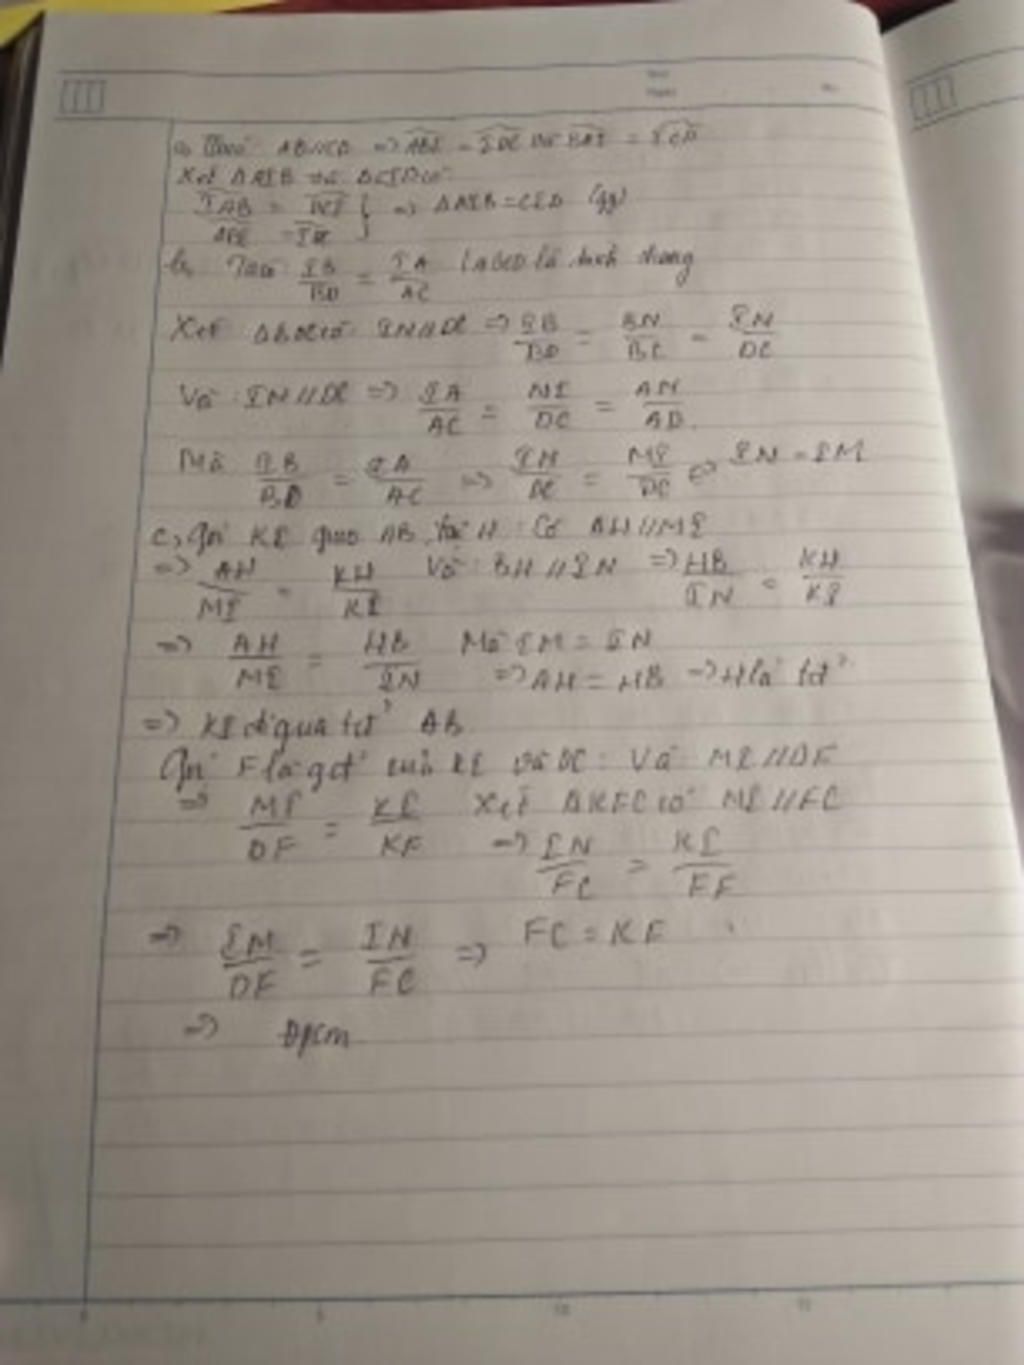 a, Ta có: AB//CD => ABI = IDC Và BAI = ICD
Xét ΔAIB và ΔCID có:
IAB = DCI
ABI = IDC } => ΔAIB = CID (gg)
b, Ta có: IB/BD = IA/AC (ABCD là hình thang
Xét ΔBDC có: IN//DC => IB/BD = BN/BC = IN/DC
Và: IN//DC => IA/AC = NI/DC = AM/AD.
Mà IB/BD = IA/AC => IN/DC = MI/DC <=> IN = IM
c, Gọi KI giao AB tại H: Có AH//MI
=> AH/MI = KH/KI Và: BH//IN => HB/IN = KH/KI
=> AH/MI = HB/IN Mà IM = IN
=> AH = HB => H là tđ
=> KI đi qua tđ AB.
Gọi F là gđ của KI và DC: Và MI//DF
=> MI/DF = KI/KF Xét ΔKFC có MI//FC
=> IN/FC = KI/FF
=> IM/DF = IN/FC => FC = KF
=> Đpcm
0 5 10 15